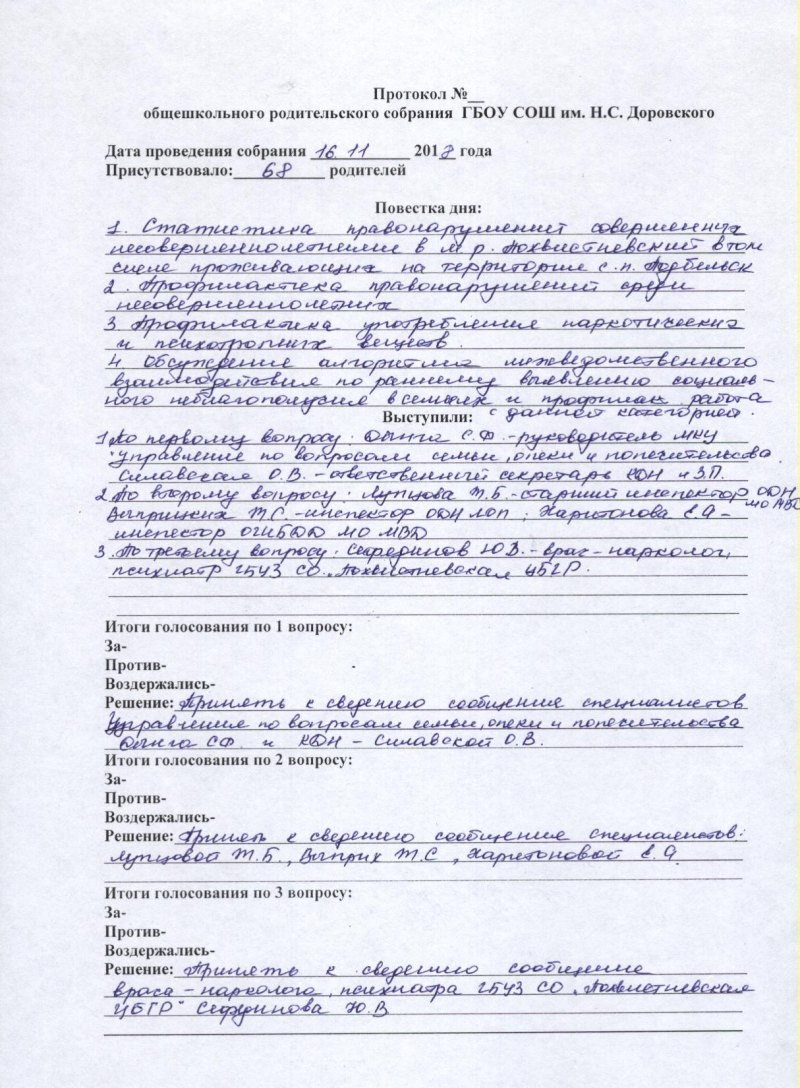 Протокол №__
общешкольного родительского собрания ГБОУ СОШ им. Н.С. Доровского
Дата проведения собрания 16.11 2018 года
Присутствовало: 68 родителей
Повестка дня:
1. Статистика правонарушений совершенных
несовершеннолетними в м.р. Похвистневский в том
числе проживающих на территории с.п. Подбельск
2. Профилактика правонарушений среди
несовершеннолетних
3. Профилактика употребления наркотических
и психотропных веществ.
4. Обсуждение алгоритма межведомственного
взаимодействия по раннему выявлению социаль-
ного неблагополучия в семьях и профилак. работа
с данной категорией.
Выступили:
1. По первому вопросу: С.Ф. - руководитель МКУ
"Управление по вопросам семьи, опеки и попечительства
Силавская О.В. - ответственный секретарь КДН и ЗП.
2. По второму вопросу: Лупцова Т.Б. - старший инспектор ОДН
МО МВД
Т.С. - инспектор ОДН ЛОП; Харитонова Е.А -
инспектор ОГИБДД МО МВД
3. По третьему вопросу: Ю.В. - врач-нарколог,
психиатр ГБУЗ СО "Похвистневская ЦБГР.
Итоги голосования по 1 вопросу:
За-
Против-
Воздержались-
Решение: Принять к сведению сообщения специалистов
Управления по вопросам семьи, опеки и попечительства
С.Ф. и КДН - Силавской О.В.
Итоги голосования по 2 вопросу:
За-
Против-
Воздержались-
Решение: Принять к сведению сообщение специалистов:
Лупцовой Т.Б., Т.С, Харитоновой Е.А.
Итоги голосования по 3 вопросу:
За-
Против-
Воздержались-
Решение: Принять к сведению сообщение
врача - нарколога, психиатра ГБУЗ СО "Похвистневская
ЦБГР" Ю.В